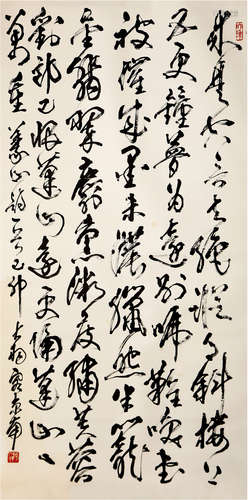 來是空言去絕蹤月斜樓上
五更鐘夢為遠別啼難喚書
被催成墨未濃蠟照半籠
金翡翠麝熏微度繡芙蓉
劉郎已恨蓬山遠更隔蓬山一
萬重 義山 己卯